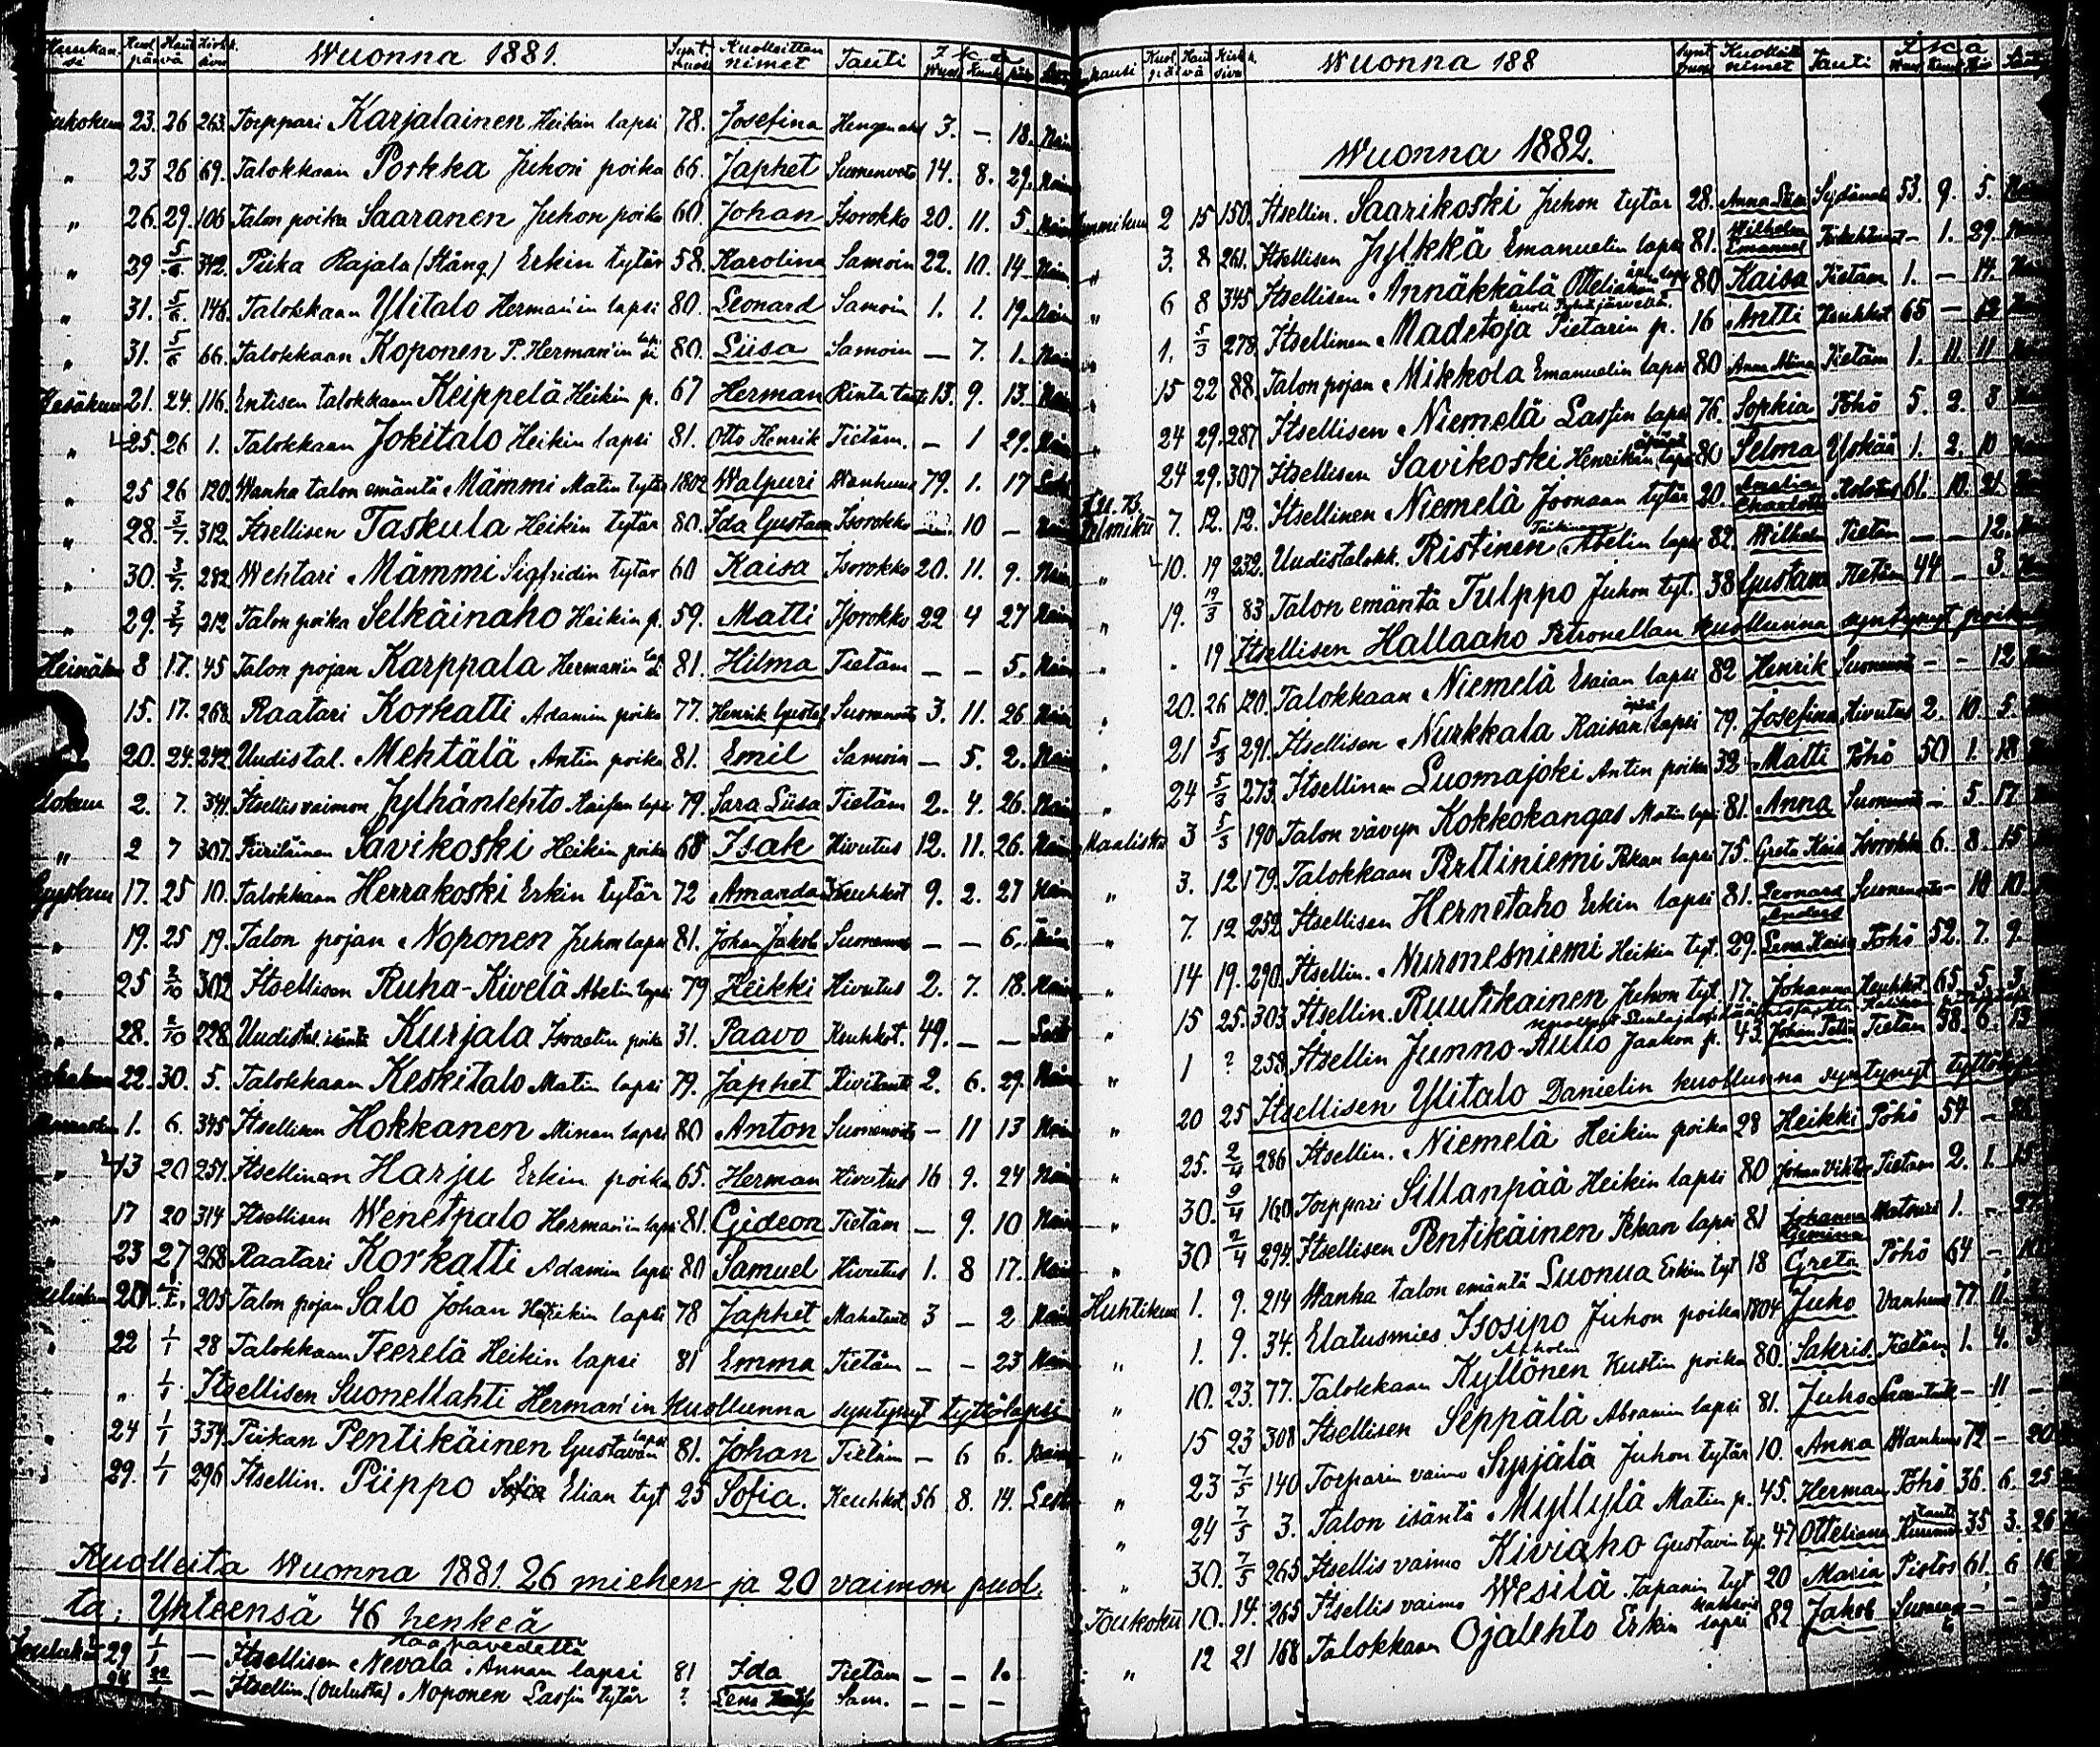 Kuukausi Kuol. päivä Haut. Kirk. k. sivu Wuonna 1881. Synt. vuosi Kuolleitten nimet Tauti Ikä Wuos. Kuuk. päiv.
Toukokuu 23. 26 263. Torppari Karjalainen Heikin lapsi 78. Josefina 3. – 18. Nain
" 23 26 69. Talokkaan Porkka Juhon poika 66. Japhet 14. 8. 29. Nain
" 26. 29. 106 Talon poika Saaranen Juhon poika 60. Johan Isorokko 20. 11. 5. Nain
" 29 5/6. 342. Piika Rajala (Stång.) Erkin tytär 58. Karolina Samoin 22. 10. 14 Nain
" 31. 5/6. 146. Talokkaan Ylitalo Herman'in lapsi 80. Leonard Samoin 1. 1. 19. Nain
" 31. 5/6 66. Talokkaan Koponen P. Herman'in lapsi 80. Liisa Samoin – 7. 1. Nain
Kesäkuu 21. 24. 116. Entisen talokkaan Keippelä Heikin p. 67 Herman Rinta taut. 13. 9. 13. Nain
" 25. 26 1. Talokkaan Jokitalo Heikin lapsi 81. Otto Henrik Tietäm. – 1 29. Nain
" 25 26 120. Wanha talon emäntä Mämmi Matin tytär 1802 Walpuri Wanhuus 79. 1. 17 Lesk
" 28. 3/7. 312. Itsellisen Taskula Heikin tytär 80. Ida Gustava Isorokko – 10 – Nain
" 30. 3/7 282. Wehtari Mämmi Sigfridin tytär 60 Kaisa Isorokko 20. 11. 9. Nain
" 29. 3/7 212 Talon poika Selkäinaho Heikin p. 59. Matti Isorokko 22 4 27 Nain
Heinäkuu 8 17. 45 Talon pojan Karppala Herman'in lapsi 81. Hilma Tietäm – – 5. Nain
15. 17. 268. Raatari Korkatti Adamin poika 77. Henrik Gustaf 3. 11. 26. Nain
20. 24. 242. Uudistal. Mehtälä Antin poika 81. Emil Samoin – 5. 2. Nain
Elokuu 2. 7. 341. Itsellis vaimon Jylhänlehto lapsi 79. Sara Liisa Tietäm 2. 4. 26. Nain
" 2 7 307. Savikoski Heikin poika 68 Isak Kivutus 12. 11. 26. Nain
Syyskuu 17. 25 10. Talokkaan Herrakoski Erkin tytär 72 Amanda Keuhkot 9. 2. 27 Nain
" 19. 25 19. Talon pojan Noponen Juhon lapsi 81. Johan Jakob – – 6. Nain
" 25 2/10 302 Itsellisen Ruha-Kivelä Abelin lapsi 79 Heikki Kivutus 2. 7. 18. Nain
" 28. 2/10 228. Uudistal. isäntä Kurjala Israelin poika 31. Paavo Keuhkot. 49. – –
Lokakuu 22. 30. 5. Talokkaan Keskitalo Matin lapsi 79. Japhet 2. 6. 29. Nain
Marraskuu 1. 6. 345 Itsellisen Hokkanen Minan lapsi 80 Anton – 11 13 Nain
" 13 20 251. Itsellinen Harju Erkin poika 65. Herman Kivutus 16 9. 24 Nain
" 17 20 314 Itsellisen Wenetpalo Herman'in lapsi 81. Gideon Tietäm – 9. 10 Nain
23 27 268 Raatari Korkatti Adamin lapsi 80 Samuel Kivutus 1. 8 17. Nain
Joulukuu 20 1/1. 205 Talon pojan Salo Johan Heikin lapsi 78 Japhet Mahataut 3 – 2 Nain
" 22 1/1 28 Talokkaan Teerelä Heikin lapsi 81 Emma Tietäm – – 23 Nain
" 1/1 Itsellisen Suonellahti Herman'in kuollunna syntynyt tyttölapsi
" 24 1/1 334. Piikan Pentikäinen Gustavan lapsi 81. Johan Tietäm – 6 6. Nain
" 29. 1/1 296 Itsellin. Piippo Sofia Elian tyt 25 Sofia. Keuhkot. 56 8. 14. Lesk
Kuolleita Wuonna 1881. 26 miehen ja 20 vaimon puol.
ta; Yhteensä 46 henkeä
Haapavedeltä
Jouluk. 29 1/1 – Itsellisen Nevala Annan lapsi 81 Ida Tietäm – – 1.
– Itsellin. (Oulusta) Noponen Lassin tytär ? Lena Sam. – – –
Kuukausi Kuol. päivä Haut. Kirk. k. sivu Wuonna 188 Synt. vuosi Kuolleitt. nimet Tauti Ikä
Wuonna 1882.
Tammikuu 2 15 150. Itsellin. Saarikoski Juhon tytär 28. Anna Liisa 53. 9. 5.
" 3. 8 261. Itsellisen Jylkkä Emanuelin lapsi 81. Wilhelm Emanuel – 1. 29.
" 6 8 345 Itsellisen Annäkkälä äpär. lapsi 80 Kaisa Tietäm 1. – 14.
kuoli Pyhäjärvellä.
" 1. 5/3 278. Itsellinen Madetoja Pietarin p. 16 Antti Keuhkot 65 –
15 22 88. Talon pojan Mikkola Emanuelin lapsi 80 Anna Miina Tietäm 1. 11. 11
" 24 29. 287 Itsellisen Niemelä Lassin lapsi 76. Sophia Pöhö 5. 2. 8
24 29. 307 Itsellisen Savikoski äpärä lapsi 80 Selma Yskää 1. 2. 10
Helmikuu 7. 12. 12. Itsellinen Niemelä Joonaan tytär 20. Amalia Charlotta 61. 10. 21.
" 10. 19 232. Uudistalokk. Ristinen Abelin lapsi 82. Wilhelm Tietäm – – 12.
" 19. 19/3 83 Talon emäntä Tulppo Juhon tyt. 38 Gustava Tietäm 44 – 3.
" 19 Itsellisen Hallaaho Petronellan kuollunna syntynyt poika
20. 26 120. Talokkaan Niemelä Esaian lapsi 82 Henrik – – 12
" 21 5/3 291. Itsellisen Nurkkala Kaisan äpärä lapsi 79. Josefina Kivutus 2. 10. 5.
" 24 5/3 273. Itsellinen Luomajoki Antin poika 32. Matti Pöhö 50 1. 18.
Maalisku 3 5/3 190 Talon vävyn Kokkokangas Matin lapsi 81. Anna – 5. 17.
" 3. 12 179. Talokkaan Perttiniemi Pekan lapsi 75. Greta Kaisa Isorokko 6. 8. 15
" 7. 12 252 Itsellisen Hernetaho Erkin lapsi 81. Leonard Anders – 10 10.
" 14 19. 290. Itsellin. Nurmesniemi Heikin tyt. 29. Lena Kaisa Pöhö 52. 7. 9.
" 15 25. 303 Itsellin. Ruutikainen Juhon tyt. 17. Johanna Keuhkot. 65. 5. 3.
" 1 ? 258 Itsellin Junno-Autio Jaakon p. 43. Johan Tietäm 38. 6. 13
" 20 25 Itsellisen Ylitalo Danielin kuollunna syntynyt tyttölapsi
" 25. 2/4 286 Itsellin. Niemelä Heikin poika 28 Heikki Pöhö 54 –
" 30. 9/4 160 Torppari Sillanpää Heikin lapsi 80 Johan Viktor Tietäm 2. 1. 15
" 30 2/4 294. Itsellisen Pentikäinen Pekan lapsi 81 Johanna 1. –
Huhtikuu 1. 9. 214 Wanha talon emäntä Luonua Erkin tyt 18 Greta Pöhö 64 –
" 1. 9. 34. Elatusmies Isosipo Juhon poika 1804 Juho Vanhuus 77. 11.
" 10. 23. 77. Talokkaan Kyllönen Kustin poika 80. Sakris. Tietäm 1. 4. 3
" 15 23 308 Itsellisen Seppälä Abramin lapsi 81. Juho – 11 –
" 23 7/5 140 Torparin vaimo Syrjälä Juhon tytär 10. Anna Wanhuus 72 – 20
" 24 7/5 3. Talon isäntä Myllylä Matin p. 45. Herman Pöhö 36. 6. 25
" 30. 7/5 265 Itsellis vaimo Kiviaho Gustavin tyt. 47 Otteliana 35 3. 26
Toukoku 10. 14. 265 Itsellis vaimo Wesilä Tapanin tyt 20 Maria Pistos 61. 6 16
" 12 21 168 Talokkaan Ojalehto Erkin lapsi 82 Jakob – – 3